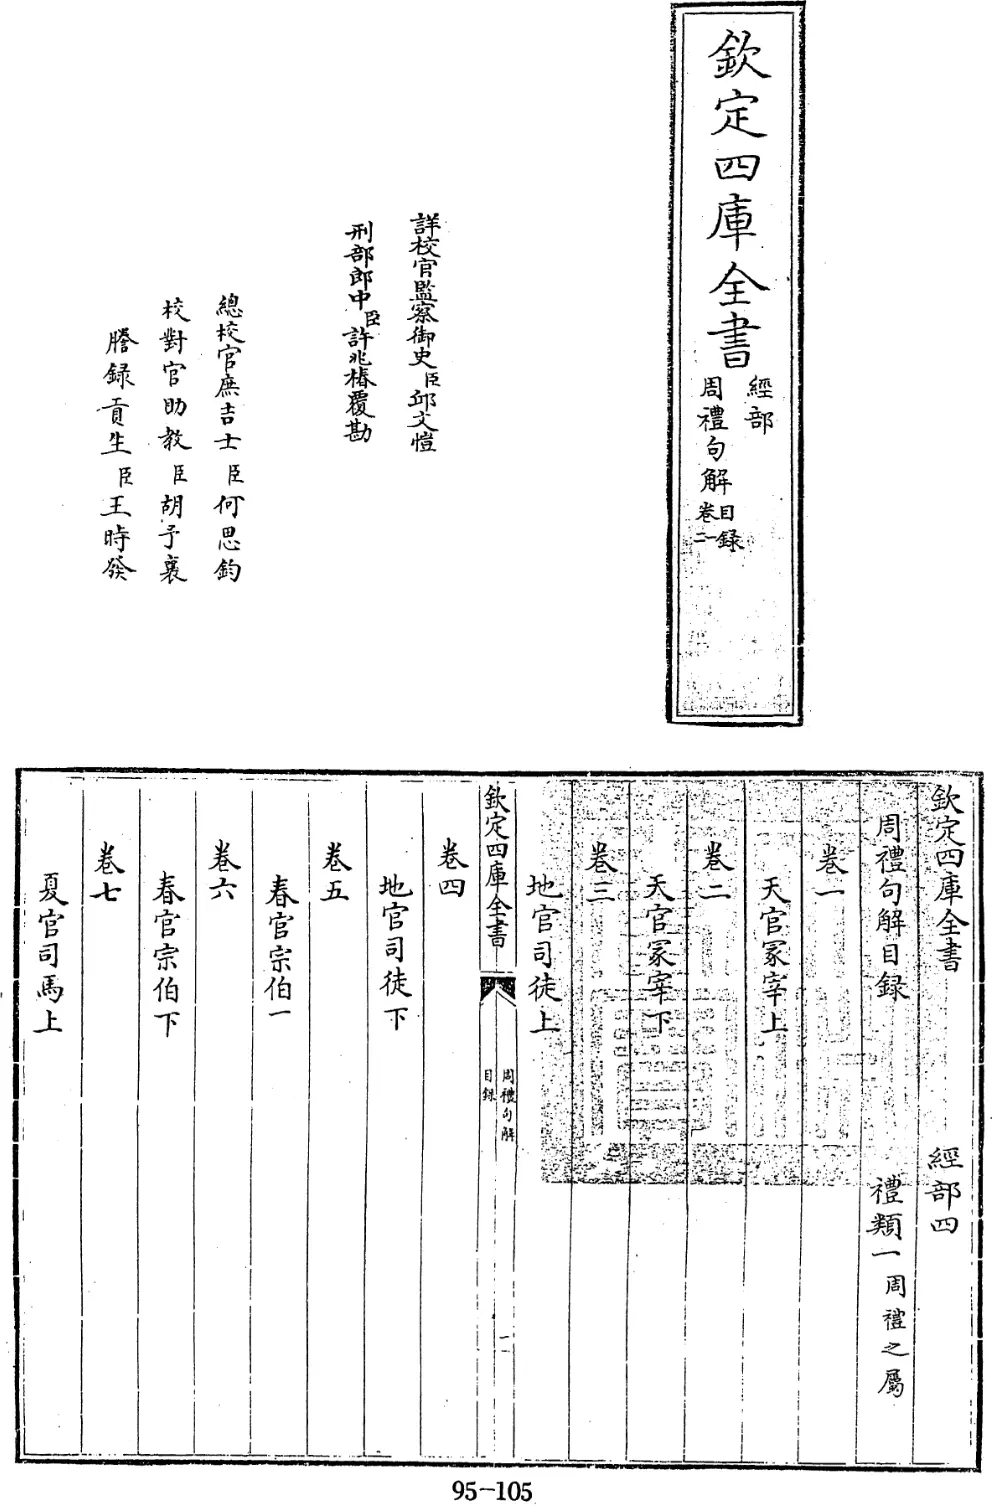 欽定四庫全書
經部
周禮句解
目錄
卷一二
詳校官監察御史臣邱文愷
刑部郎中臣許兆椿覆勘
總校官庶吉士臣何思鈞
校對官助教臣胡予襄
謄錄貢生臣王時發
欽定四庫全書 經部四
周禮句解目録 禮類一周禮之屬
卷一
天官冢宰上
卷二
天官冢宰下
卷三
地官司徒上
欽定四庫全書
周禮句解
目録
一
卷四
地官司徒下
卷五
春官宗伯一
卷六
春官宗伯下
卷七
夏官司馬上
95-105